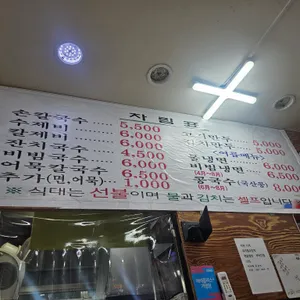 차림표
손칼국수 5,500
수제비 6,000
칼제비 6,000
잔치국수 4,500
비빔국수 6,000
어묵칼국수 6,500
추가(면,어묵) 1,000
고기만두 5,000
김치만두 5,000
<여름메뉴>
물냉면 6,000
비빔냉면
(4月~8月)
콩국수(국산콩) 8,000
(6月~8月)
※ 식대는 선불이며 물과 김치는 셀프입니다